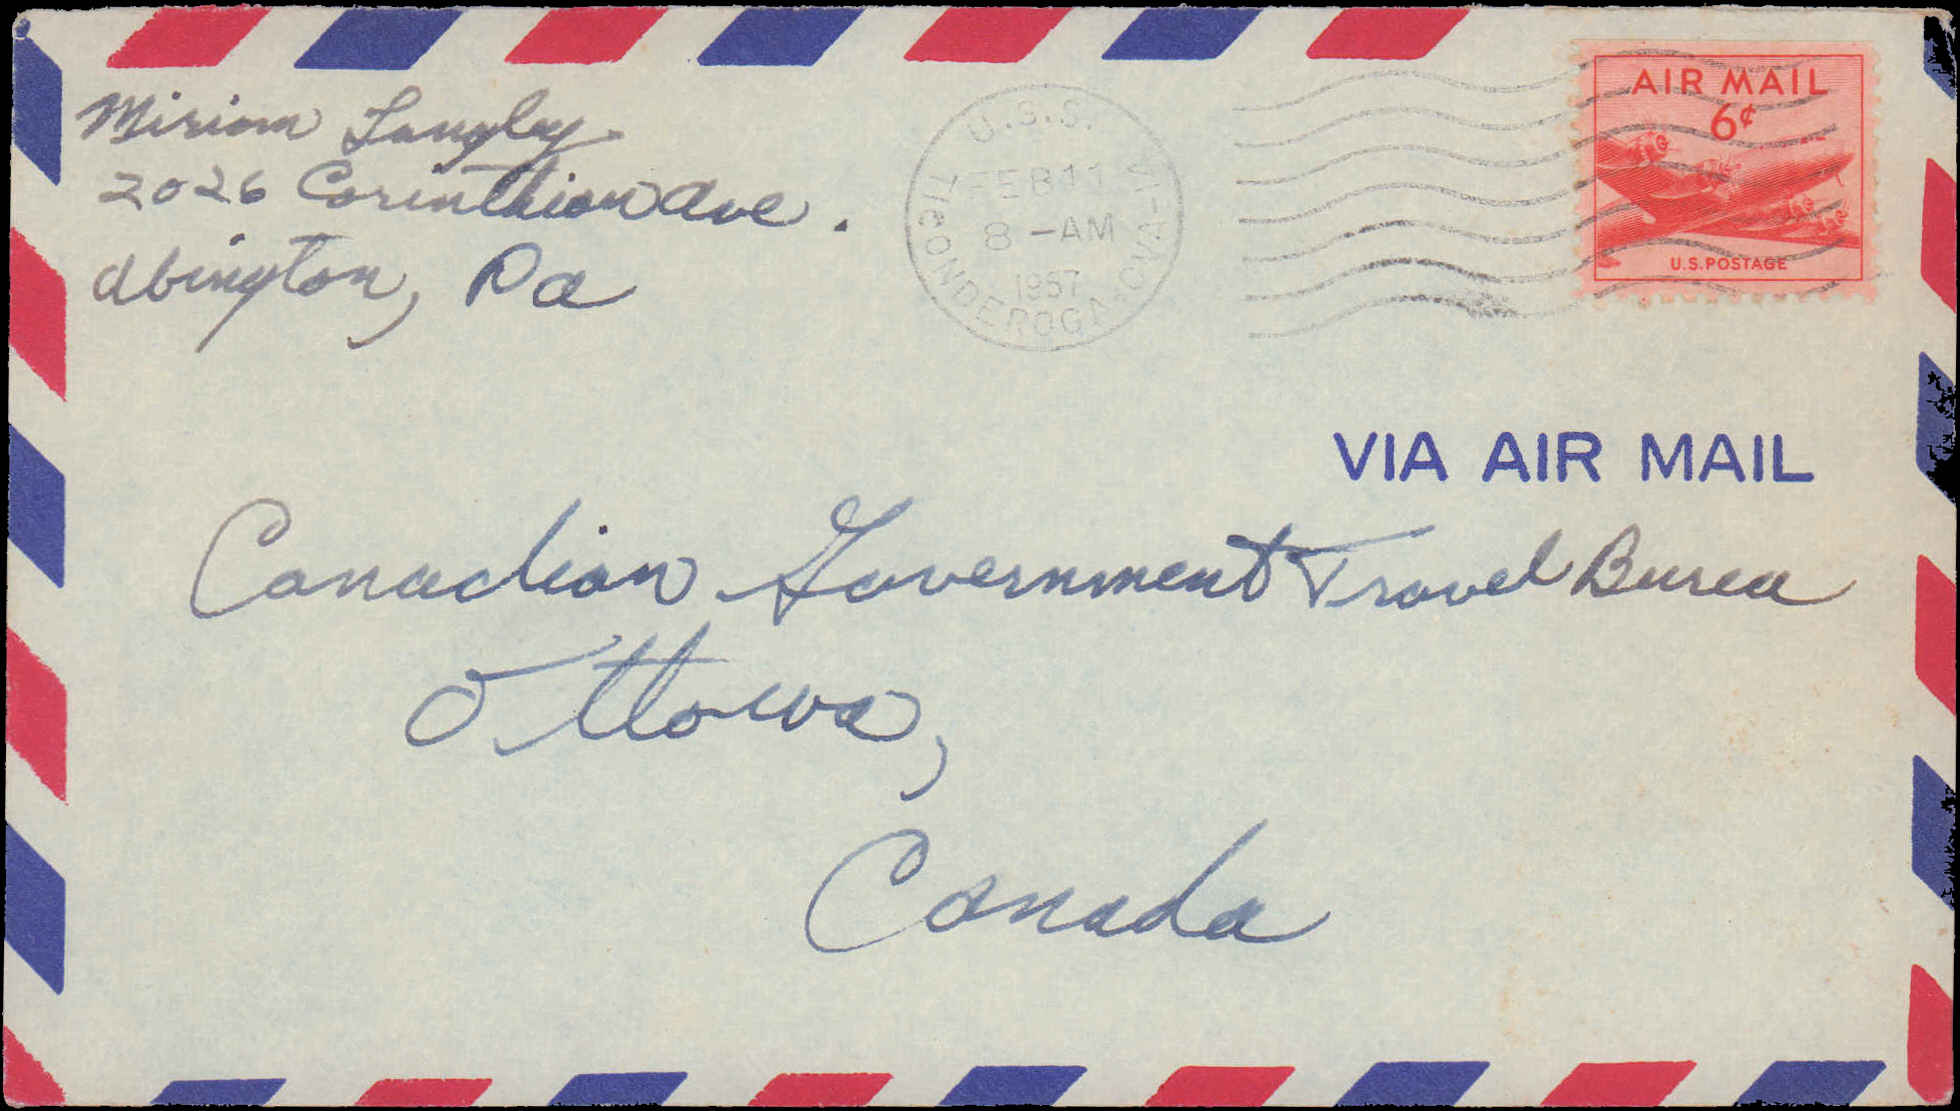 Miriam Langley
2026 Corinthian Ave.
Abington, Pa
U.S.S.
FEB 11
8 - AM
1957
TICONDEROGA - CVA-14
AIR MAIL
6¢
U.S. POSTAGE
VIA AIR MAIL
Canadian Government Travel Burea
Ottowa,
Canada